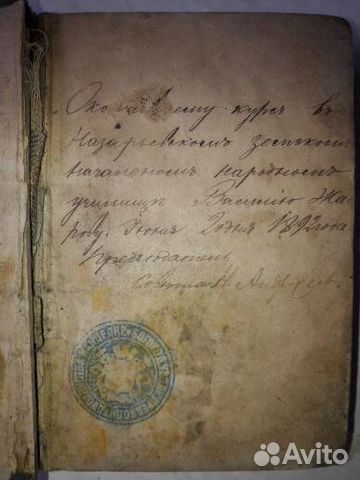 Окончившему курсъ въ
Назарьевскомъ земскомъ
начальномъ народномъ
училищѣ Василію Жа-
рову. Іюня 2 дня 1892 года
Председатель
Совета
Avito